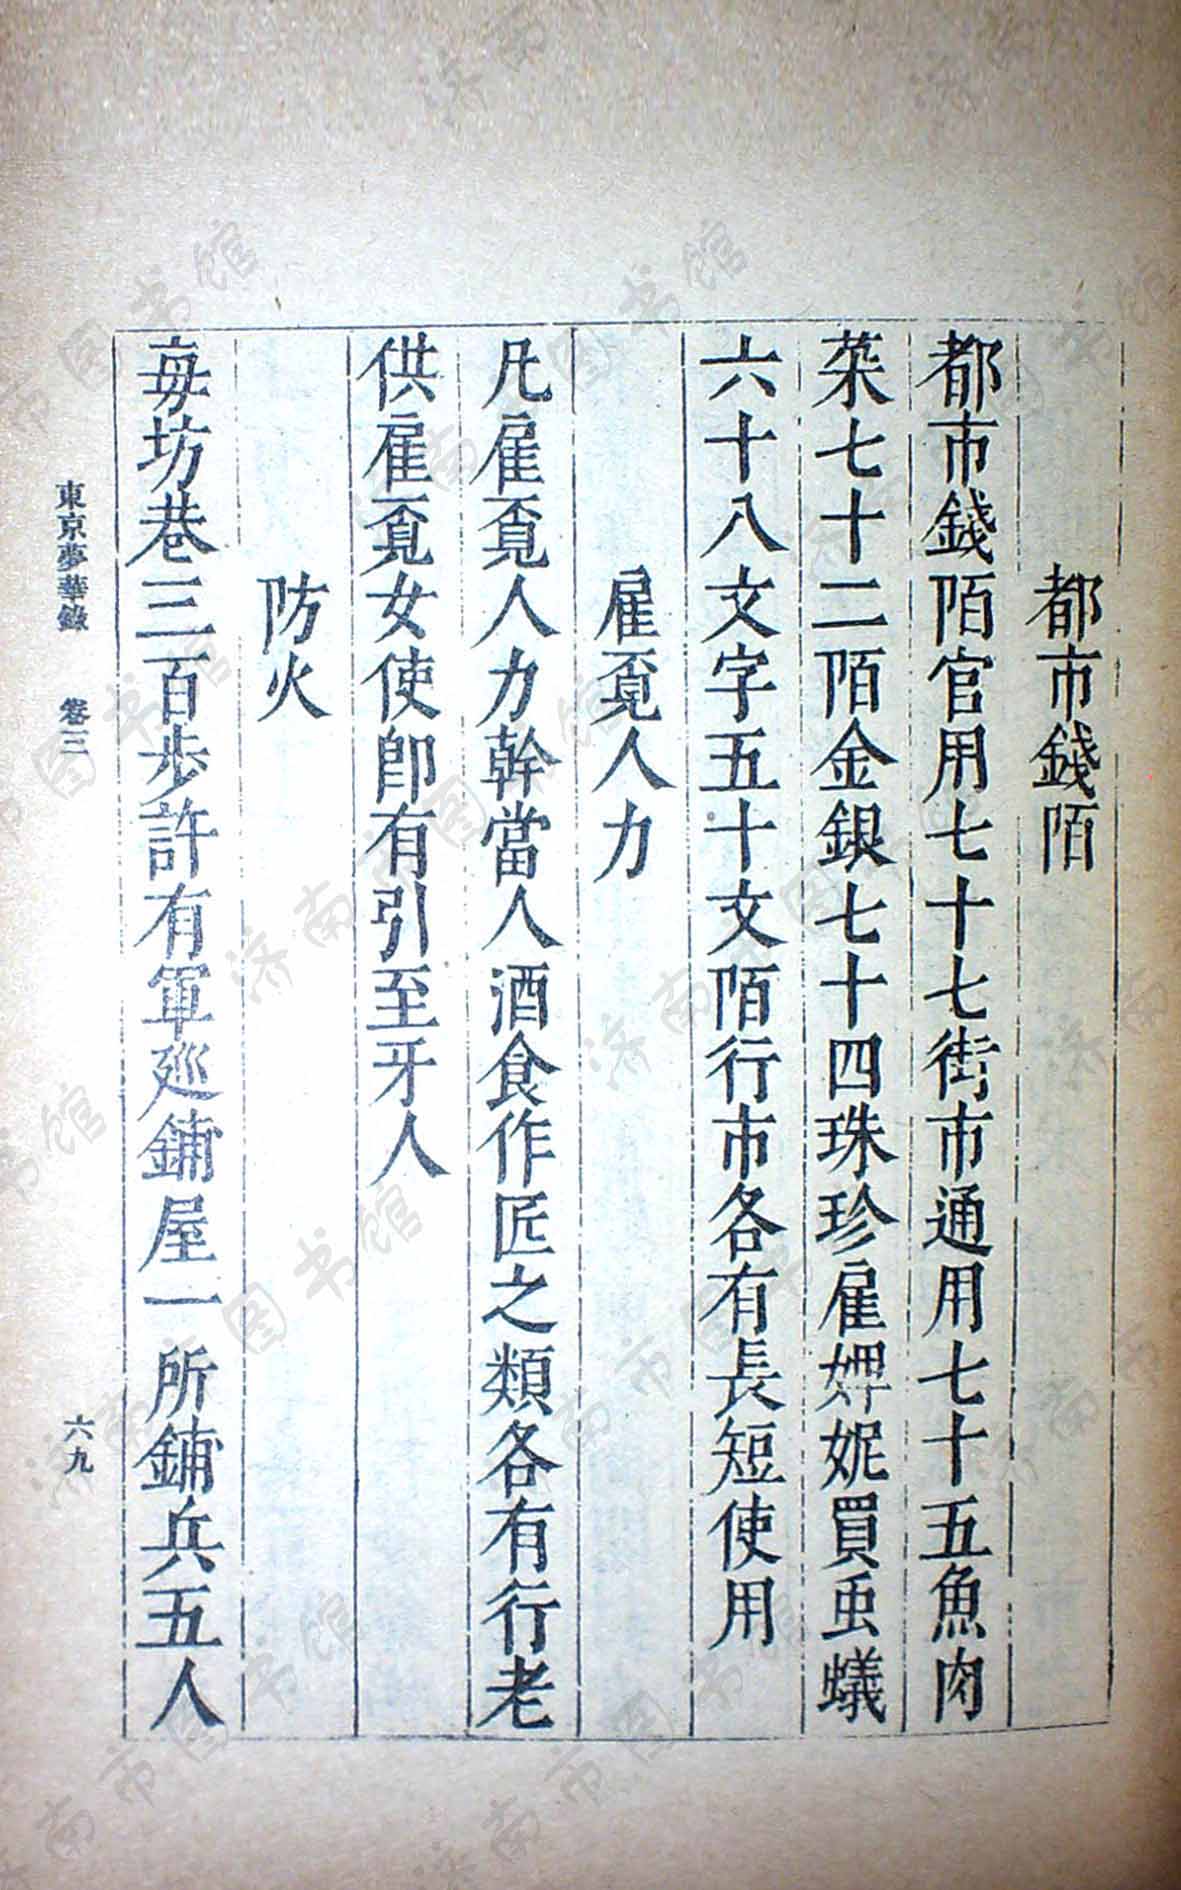 都市錢陌
都市錢陌官用七十七街市通用七十五魚肉
菜七十二陌金銀七十四珠珍雇婢妮買虫蟻
六十八文字五十文陌行市各有長短使用
雇覔人力
凡雇覔人力幹當人酒食作匠之類各有行老
供雇覔女使即有引至牙人
防火
每坊巷三百步許有軍廵鋪屋一所鋪兵五人
東京夢華錄 卷三 六九
济南市图书馆